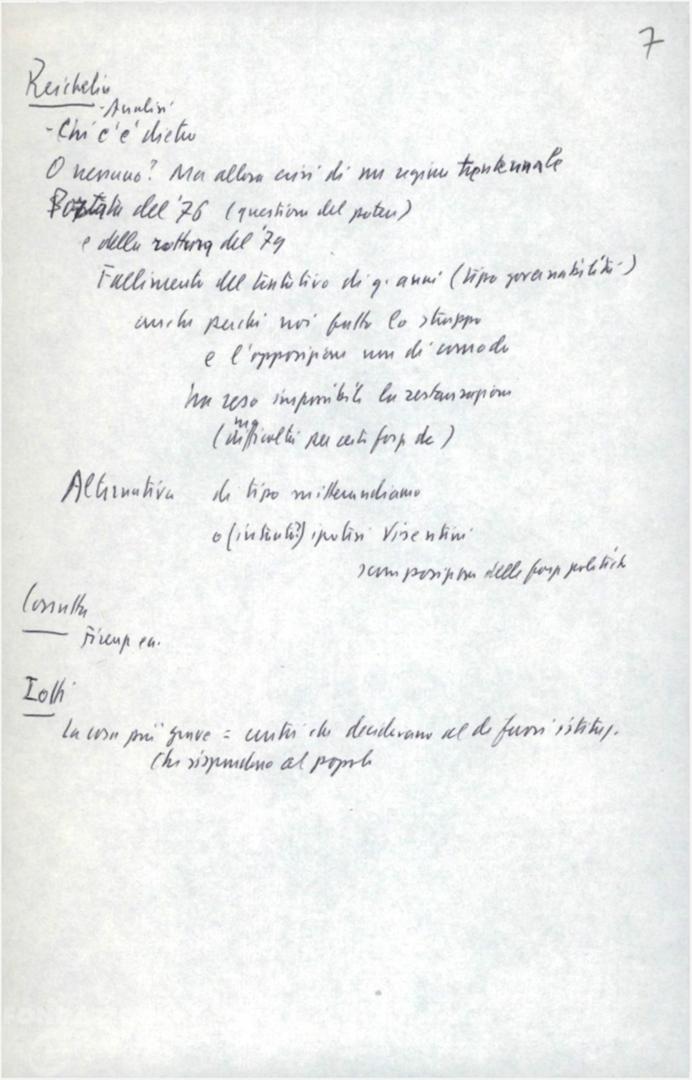 7
Reichelin
- Analisi
- Chi c'è dietro
O nessuno? Ma allora crisi di un regime trentennale
Portata del '76 (questione del potere)
e della rottura del '79
Fallimento del tentativo di q. anni (tipo governabilità)
anche perché noi fatto lo strappo
e l'opposizione non di comodo
ha reso impossibile la restaurazione
(ma difficoltà per certe forze dc)
Alternativa di tipo mitterandiano
o (intanto?) ipotesi Visentini
scomposizione delle forze politiche
Cossutta
Firenze ecc.
Iotti
La cosa più grave = centri che decidevano al di fuori istituz.
che rispondono al popolo